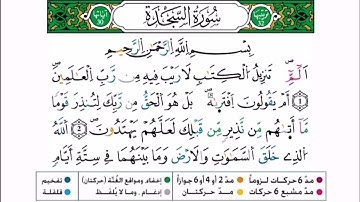 سُورَةُ السَّجْدَةِ
بِسْمِ اللَّهِ الرَّحْمَٰنِ الرَّحِيمِ
الٓمٓ تَنزِيلُ الْكِتَٰبِ لَا رَيْبَ فِيهِ مِن رَّبِّ الْعَٰلَمِينَ
(1) أَمْ يَقُولُونَ افْتَرَىٰهُ بَلْ هُوَ الْحَقُّ مِن رَّبِّكَ لِتُنذِرَ قَوْمًا
مَّا أَتَىٰهُم مِّن نَّذِيرٍ مِّن قَبْلِكَ لَعَلَّهُمْ يَهْتَدُونَ (2) اللَّهُ
الَّذِي خَلَقَ السَّمَٰوَٰتِ وَالْأَرْضَ وَمَا بَيْنَهُمَا فِي سِتَّةِ أَيَّامٍ
مدّ 6 حركات لزوماً مدّ 2 أو 4 أو 6 جوازاً إخفاء ومواقع الغُنَّة (حركتان) تفخيم
مدّ مشبع 6 حركات مدّ حركتان إدغام . وما لا يُلفَظ قلقلة